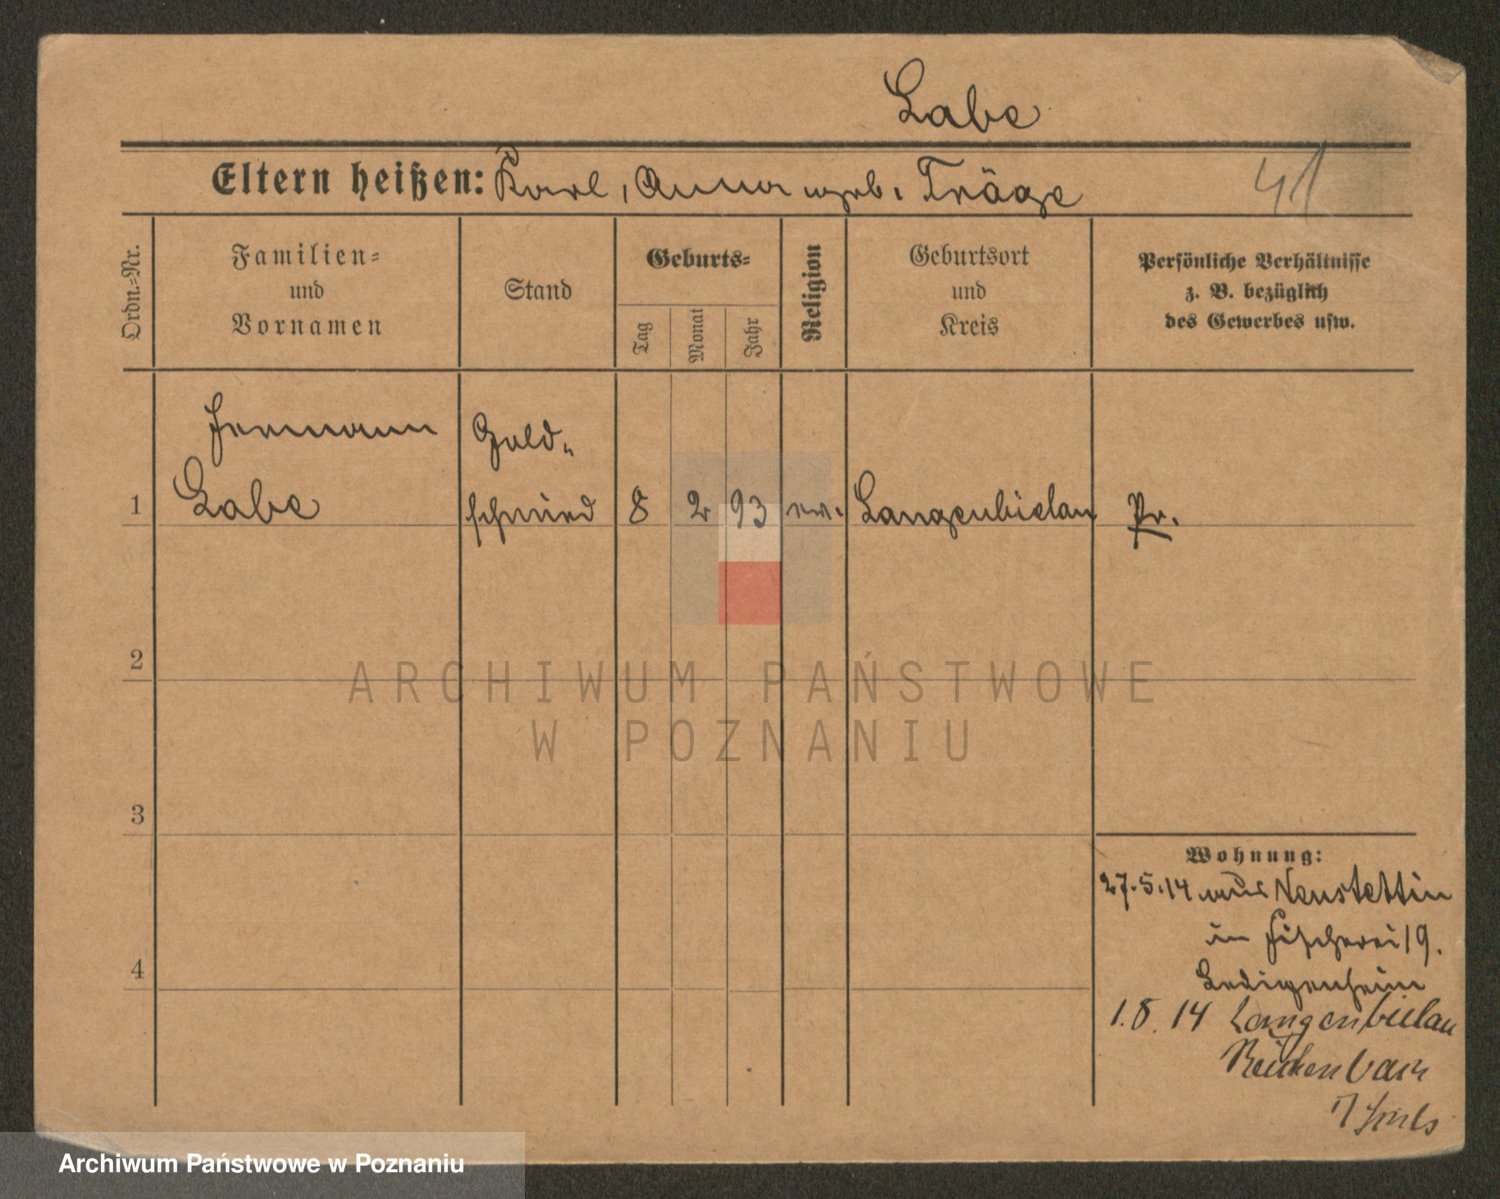 Labe
Eltern heißen: Karl, Anna geb. Träge
41
Ordn.=Nr.
Familien=
und
Vornamen
Stand
Geburts=
Tag
Monat
Jahr
Religion
Geburtsort
und
Kreis
Persönliche Verhältnisse
z. B. bezüglich
des Gewerbes usw.
Hermann
Labe
Gold-
schmied
1
8 2 93 ev. Langenbielau Pr.
2
ARCHIWUM PAŃSTWOWE
W POZNANIU
3
Wohnung:
27.5.14 aus Neustettin
in Fischerei 19.
4
Ledigenheim
1.8.14 Langenbielau
Reichenbach
Archiwum Państwowe w Poznaniu